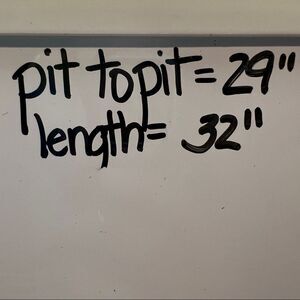 pit to pit = 29"
length = 32"